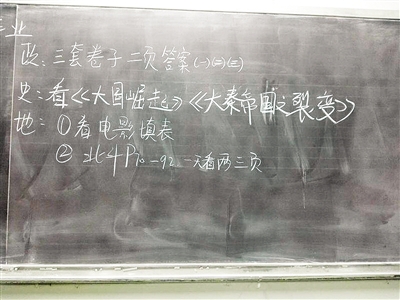 作业
政：三套卷子二页答案(一)(二)(三)
史：看《大国崛起》《大秦帝国之裂变》
地：①看电影填表
② 北斗P70-92 一天看两三页